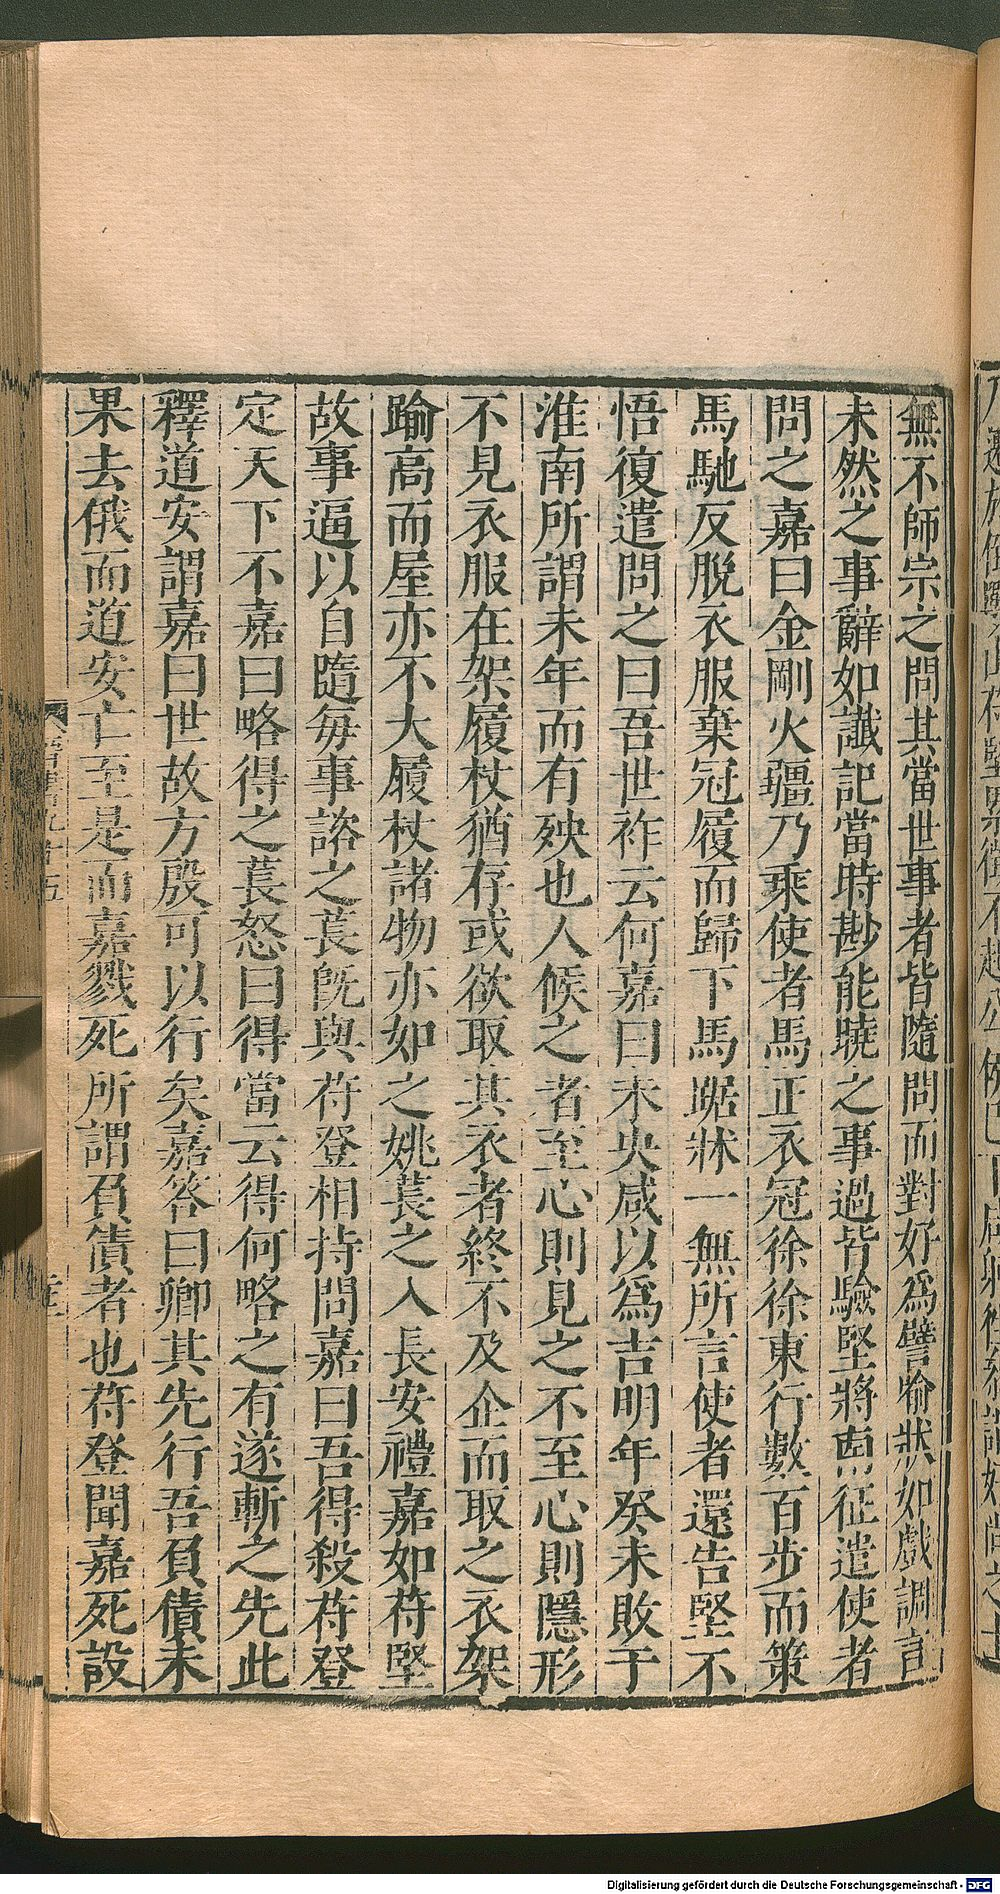 無不師宗之問其當世事者皆隨問而對好爲譬喻狀如戲調言
未然之事辭如讖記當時尠能曉之事過皆驗堅將南征遣使者
問之嘉曰金剛火疆乃乘使者馬正衣冠徐徐東行數百步而策
馬馳反脫衣服棄冠履而歸下馬踞牀一無所言使者還告堅不
悟復遣問之曰吾世祚云何嘉曰未央咸以爲吉明年癸未敗于
淮南所謂未年而有殃也人候之者至心則見之不至心則隱形
不見衣服在架履杖猶存或欲取其衣者終不及企而取之衣架
踰高而屋亦不大履杖諸物亦如之姚萇之入長安禮嘉如苻堅
故事逼以自隨每事諮之萇旣與苻登相持問嘉曰吾得殺苻登
定天下不嘉曰略得之萇怒曰得當云得何略之有遂斬之先此
釋道安謂嘉曰世故方殷可以行矣嘉答曰卿其先行吾負債未
果去俄而道安亡至是而嘉戮死所謂負債者也苻登聞嘉死設
Digitalisierung gefördert durch die Deutsche Forschungsgemeinschaft - DFG